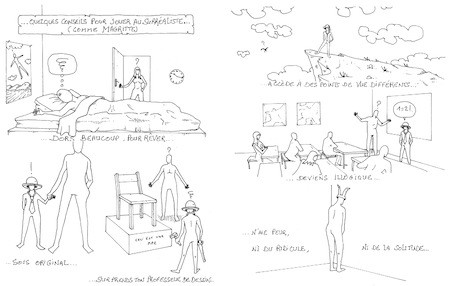 QUELQUES CONSEILS POUR JOUER AU SURRÉALISTE...
(COMME MAGRITTE)
?
DORS BEAUCOUP, POUR RÊVER...
...SOIS ORIGINAL...
?
CECI EST UNE
...SURPRENDS TON PROFESSEUR DE DESSIN...
ACCÈDE A DES POINTS DE VUE DIFFÉRENTS...
?
1+1=
...DEVIENS ILLOGIQUE...
...N'AIE PEUR,
NI DU RIDICULE,
NI DE LA SOLITUDE...